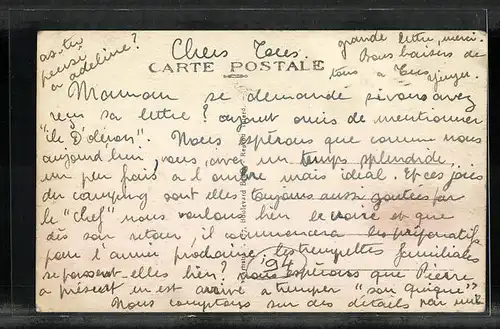 as-tu
pensé
à adeline?
Chers Tous.
grande lettre, merci.
Bons baisers de
tous a Tous
CARTE POSTALE
Maman se demande si vous avez
reçu sa lettre? ayant omis de mentionner
"île D'oléron". Nous espérons que comme nous
aujourd'hui, vous avez un temps splendide,
un peu frais a l'ombre mais idéal. Et ces joies
du camping sont elles toujours aussi goutées par
le "chef" nous voulons bien le croire et que
dès son retour, il commencera les préparatifs
pour l'année prochaine. les trempettes familiales
se passent-elles bien? Nous espérons que Pierre
a présent en est arrivé a tremper "son quique"
Nous comptons sur des détails par une
Boulevard
194